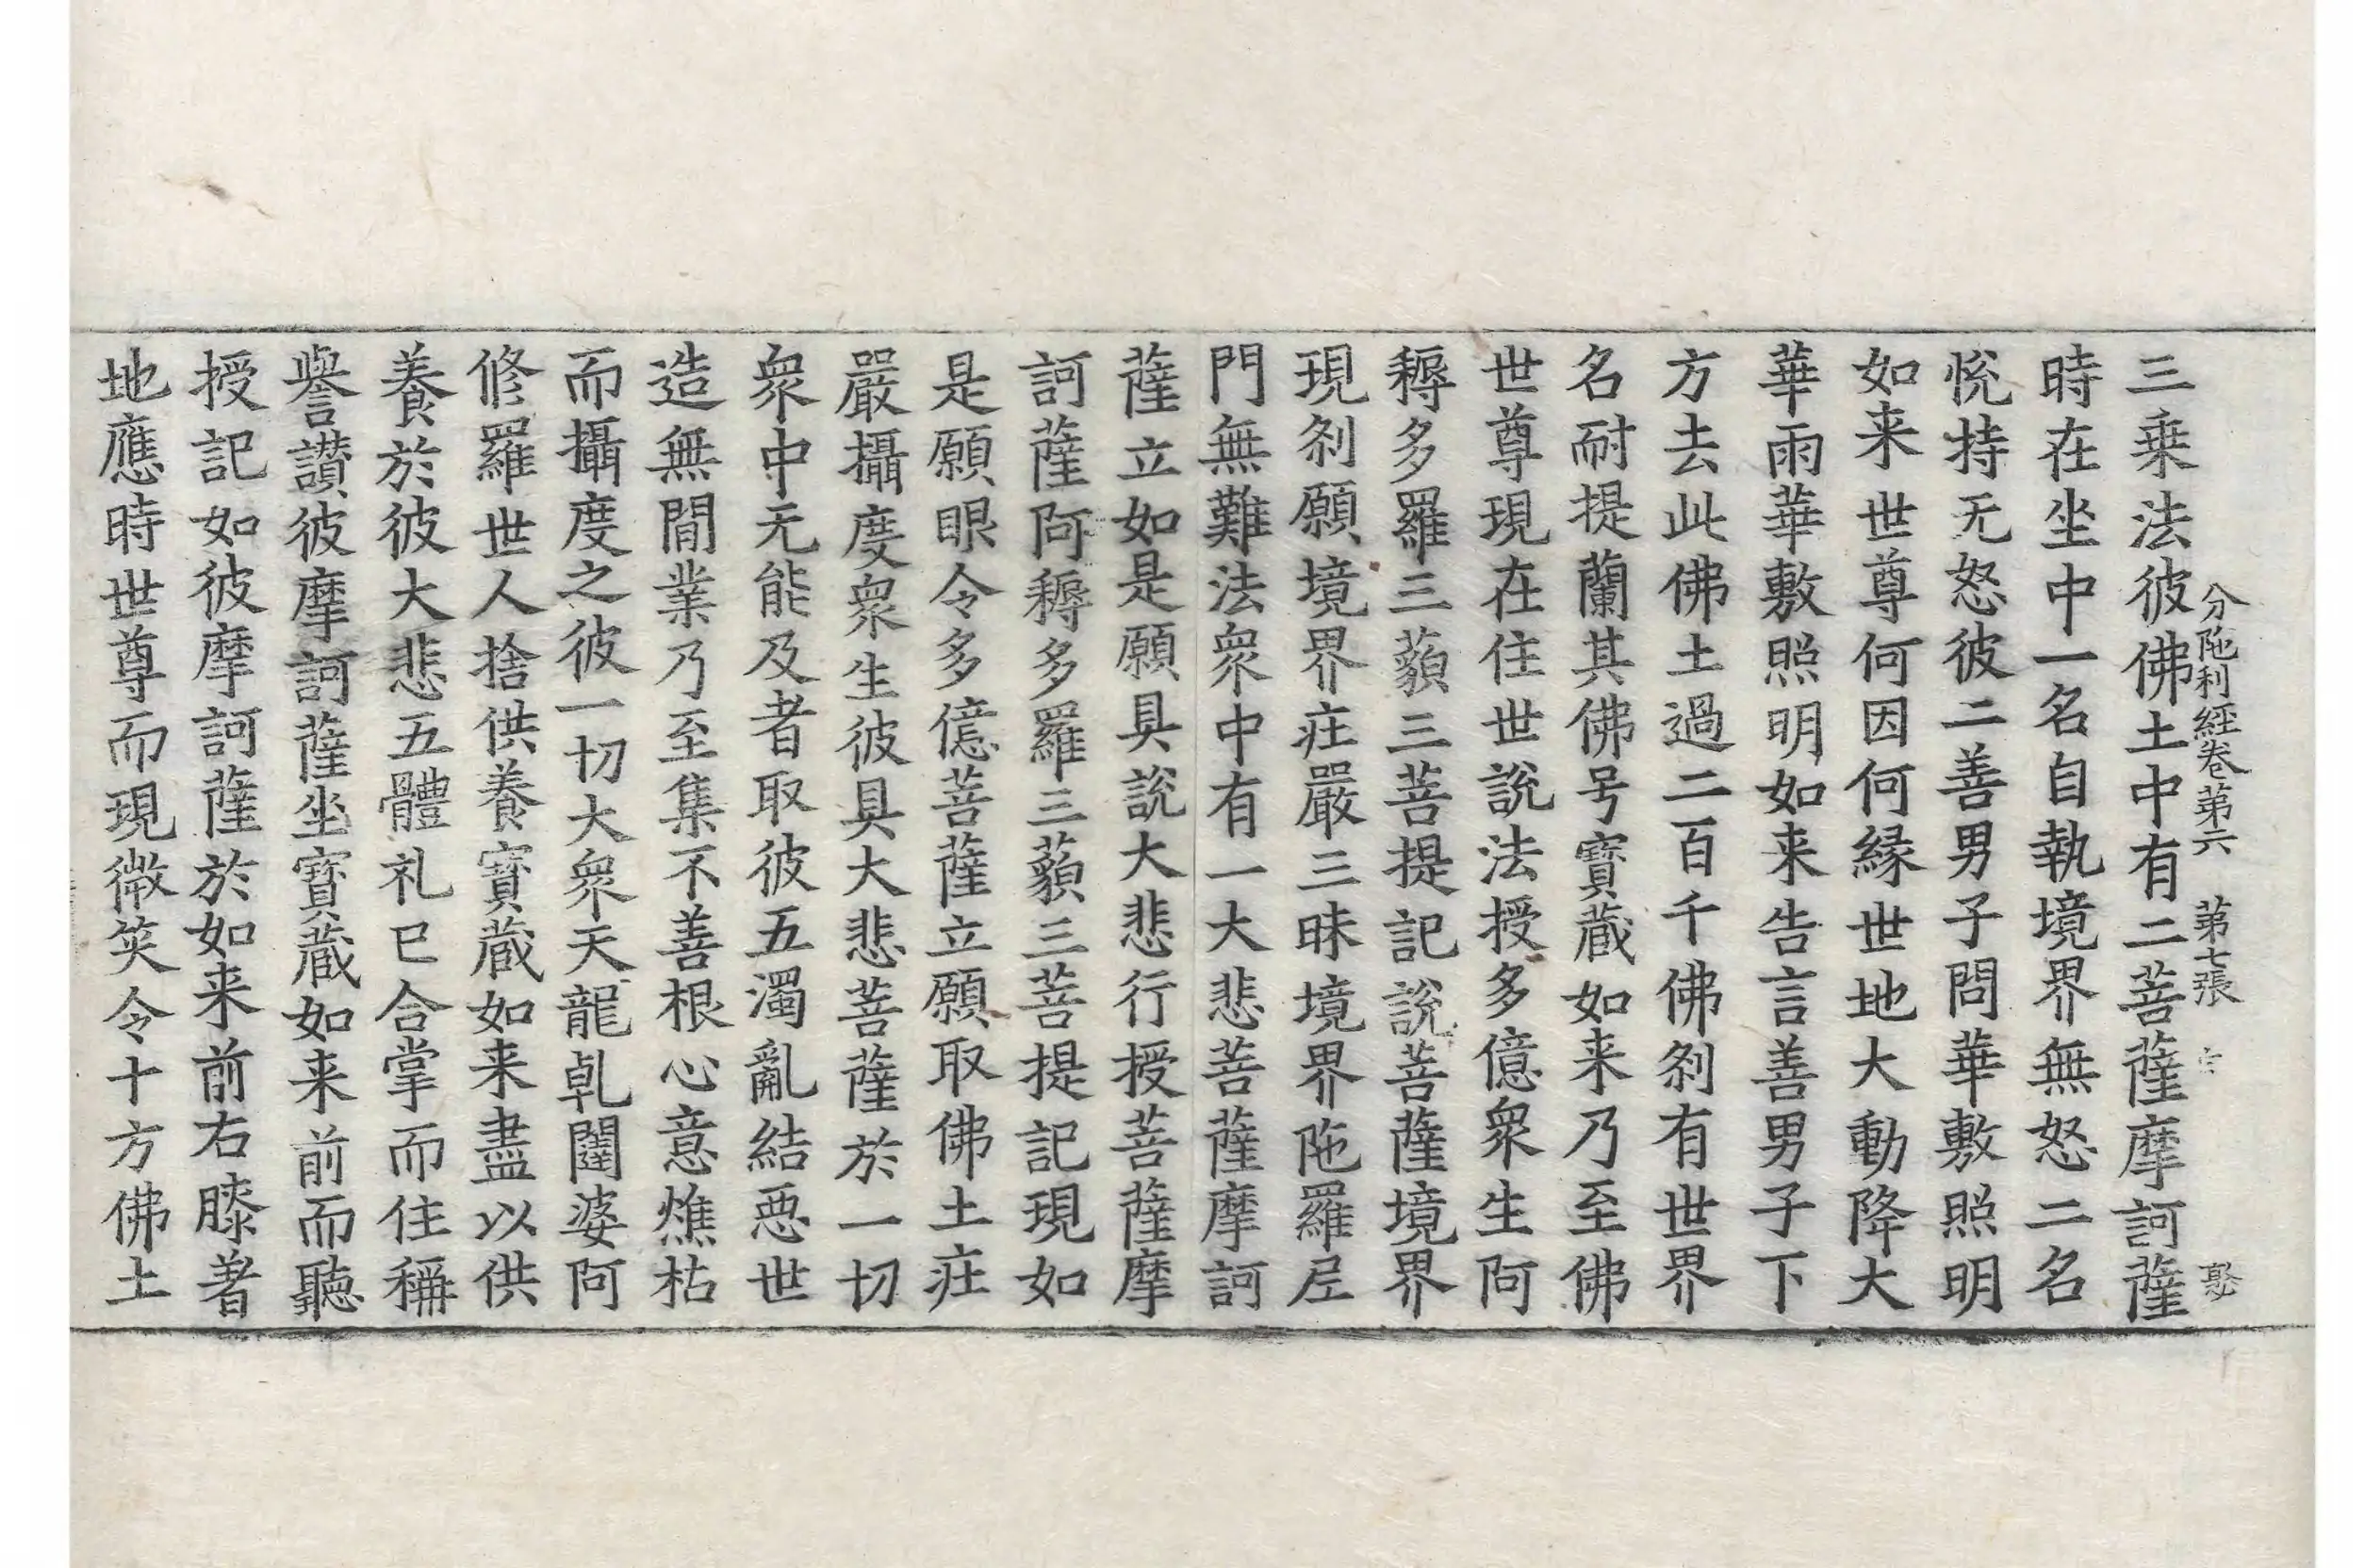 三乗法彼佛土中有二菩薩摩訶薩
分陁利經卷苐六 苐七張 宇 㝡
時在坐中一名自執境界無怒二名
悅持无怒彼二善男子問華敷照明
如来世尊何因何縁世地大動降大
華雨華敷照明如来告言善男子下
方去此佛土過二百千佛刹有世界
名耐提蘭其佛号寶蔵如来乃至佛
世尊現在住世說法授多億衆生阿
耨多羅三藐三菩提記說菩薩境界
現刹願境界庄嚴三昧境界陁羅尼
門無難法衆中有一大悲菩薩摩訶
薩立如是願具說大悲行授菩薩摩
訶薩阿耨多羅三藐三菩提記現如
是願眼令多億菩薩立願取佛土庄
嚴攝度衆生彼具大悲菩薩於一切
衆中无能及者取彼五濁亂結惡世
造無間業乃至集不善根心意燋枯
而攝度之彼一切大衆天龍乹闥婆阿
修羅世人捨供養寶蔵如来盡以供
養於彼大悲五體礼已合掌而住稱
譽讃彼摩訶薩坐寶蔵如来前而聽
授記如彼摩訶薩於如来前右膝著
地應時世尊而現微笑令十方佛土